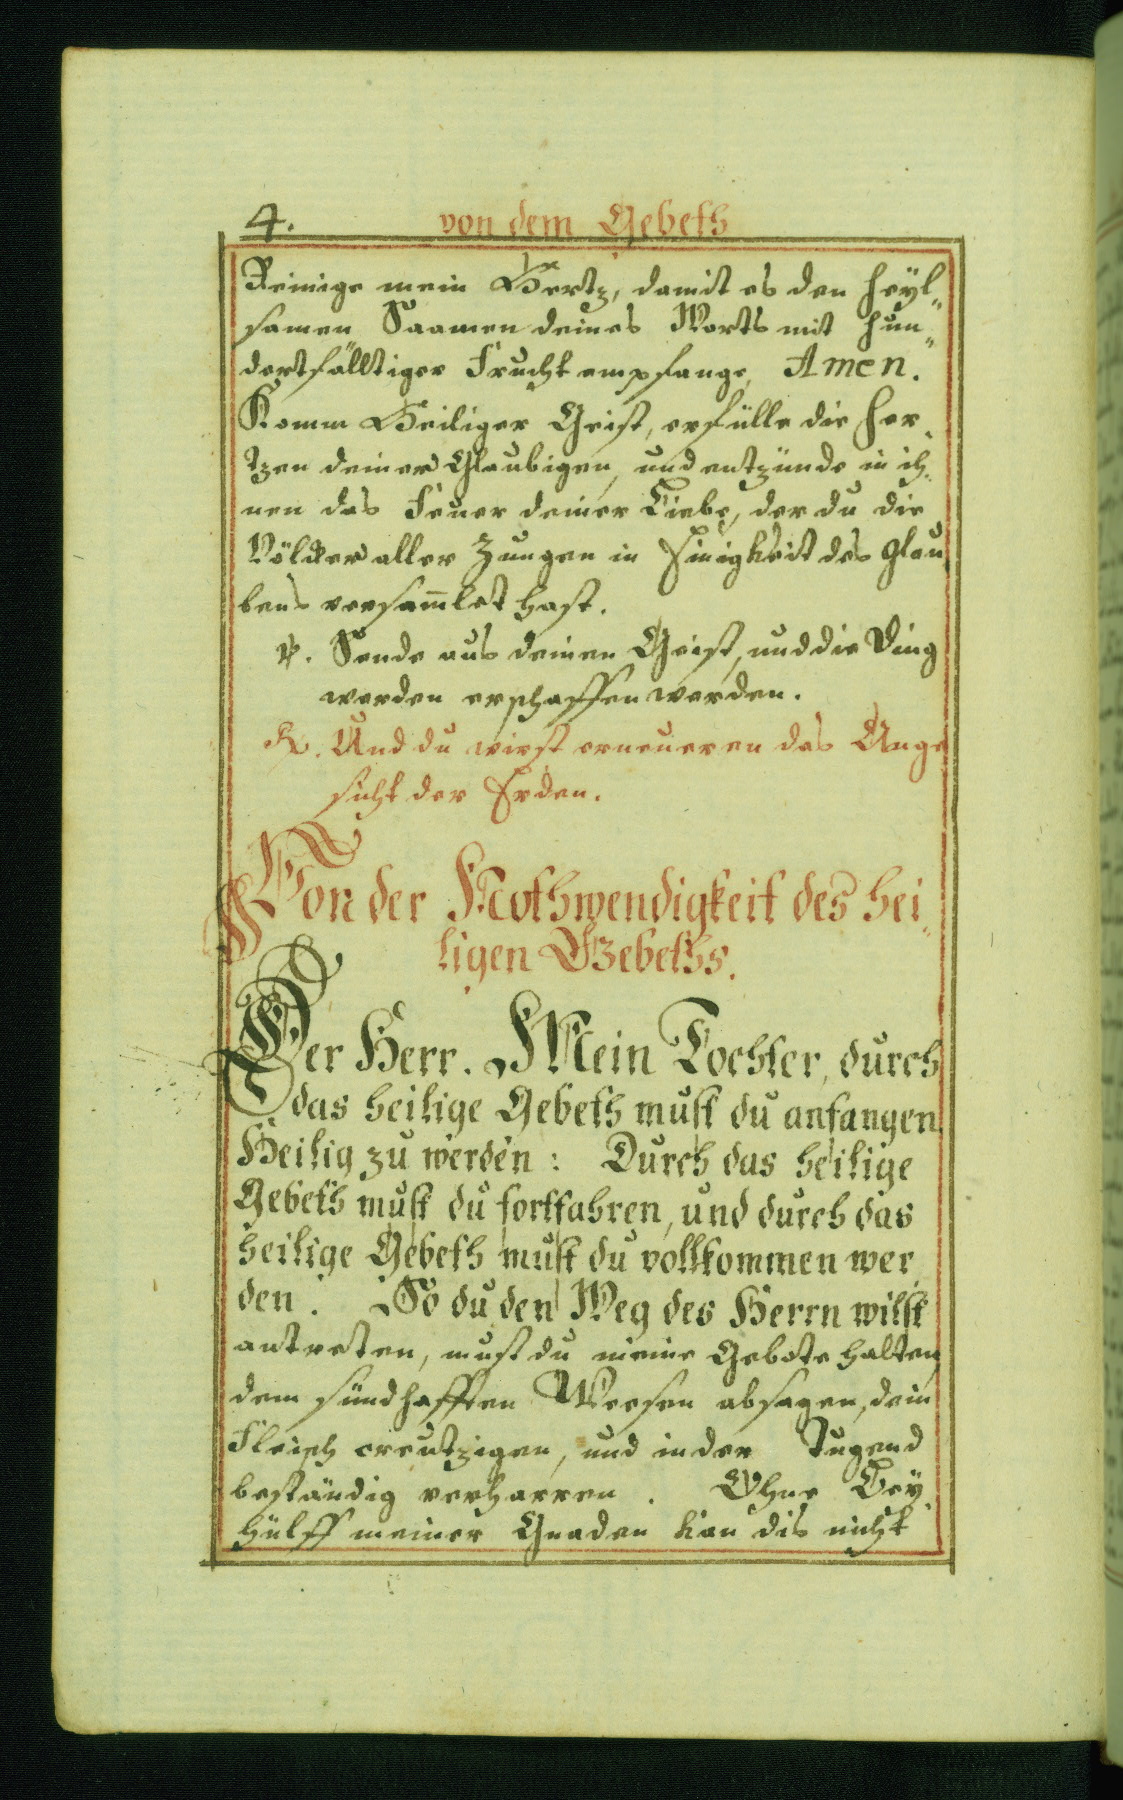 4.
von dem Gebeth
Reinige mein Hertz, damit es den heyl„
samen Saamen deines Worts mit hun„
dertfälltiger Frucht empfange, Amen.
Komm Heiliger Geist, erfülle die Her„
tzen deiner Glaubigen, und entzünde in ih„
nen das Feuer deiner Liebe, der du die
Völcker aller Zungen in Einigkeit des Glau„
bens versam̅let hast.
℣. Sende aus deinen Geist, und die Ding
werden erschaffen werden.
℟. Und du wirst erneueren das Ange
sicht der Erden.
Von der Nothwendigkeit des hei„
ligen Gebeths.
Der Herr. Mein Tochter, durch
das heilige Gebeth must du anfangen
Heilig zu werden: Durch das heilige
Gebeth must du fortfahren, und durch das
heilige Gebeth must du vollkommen wer„
den. So du den Weg des Herrn wilst
antreten, must du meine Gebote halten,
dem sündhafften Weesen absagen, dein
Fleisch creutzigen, und in der Tugend
beständig verharren. Ohne Bey„
hülff meiner Gnaden kan dis nicht